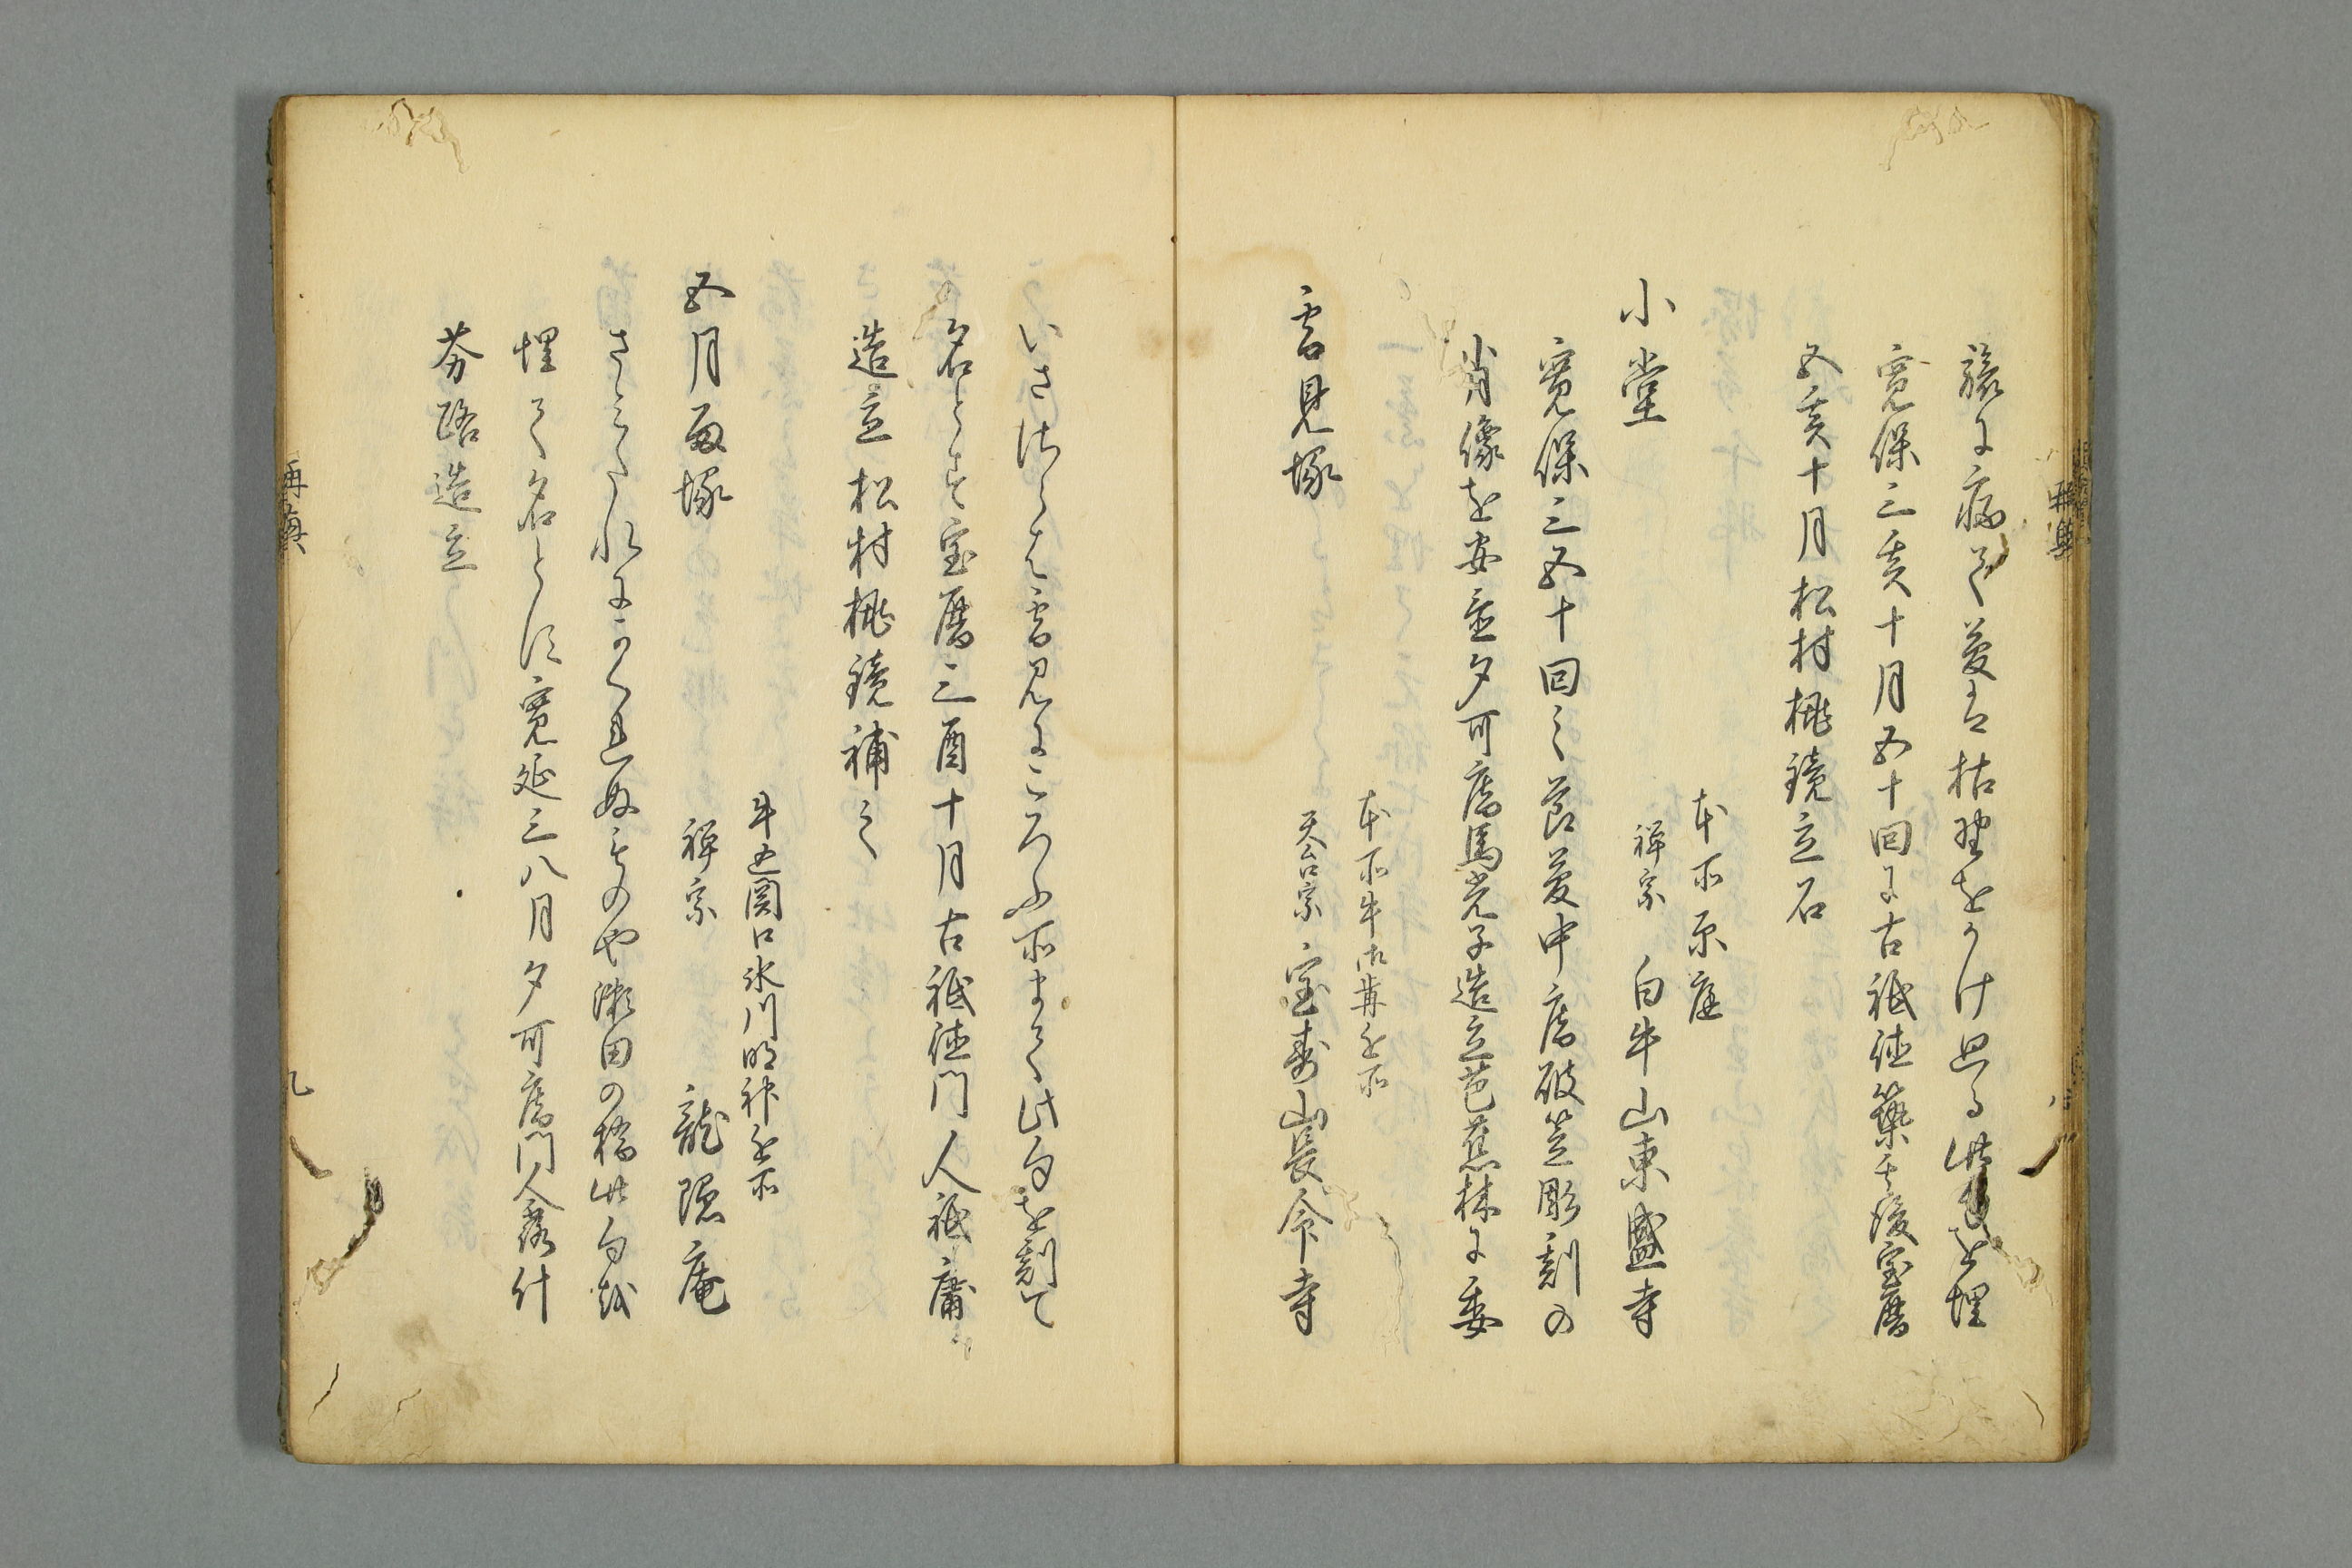 旅に病て夢は枯野をかけ廻る此句を埋
寛保三亥十月五十回に古祗徳築其後宝暦
五亥十月松村桃鏡立石
本所原庭
小堂 禅宗 白牛山東盛寺
寛保三五十回之節夢中庵破笠彫刻の
肖像を安置夕可庵馬光子造立芭蕉林に委
本所牛御前近所
雪見塚 天台宗 宝寿山長命寺
いささらは雪見にころふ所まて此句を刻て
名とす宝暦三酉十月古祗徳門人祗庸
造立松村桃鏡補之
牛込関口氷川明神近所
五月雨塚 禅宗 龍隠庵
さみたれにかくれぬものや瀬田の橋此句を
埋て名とす寛延三八月夕可庵門人 什
芬路造立